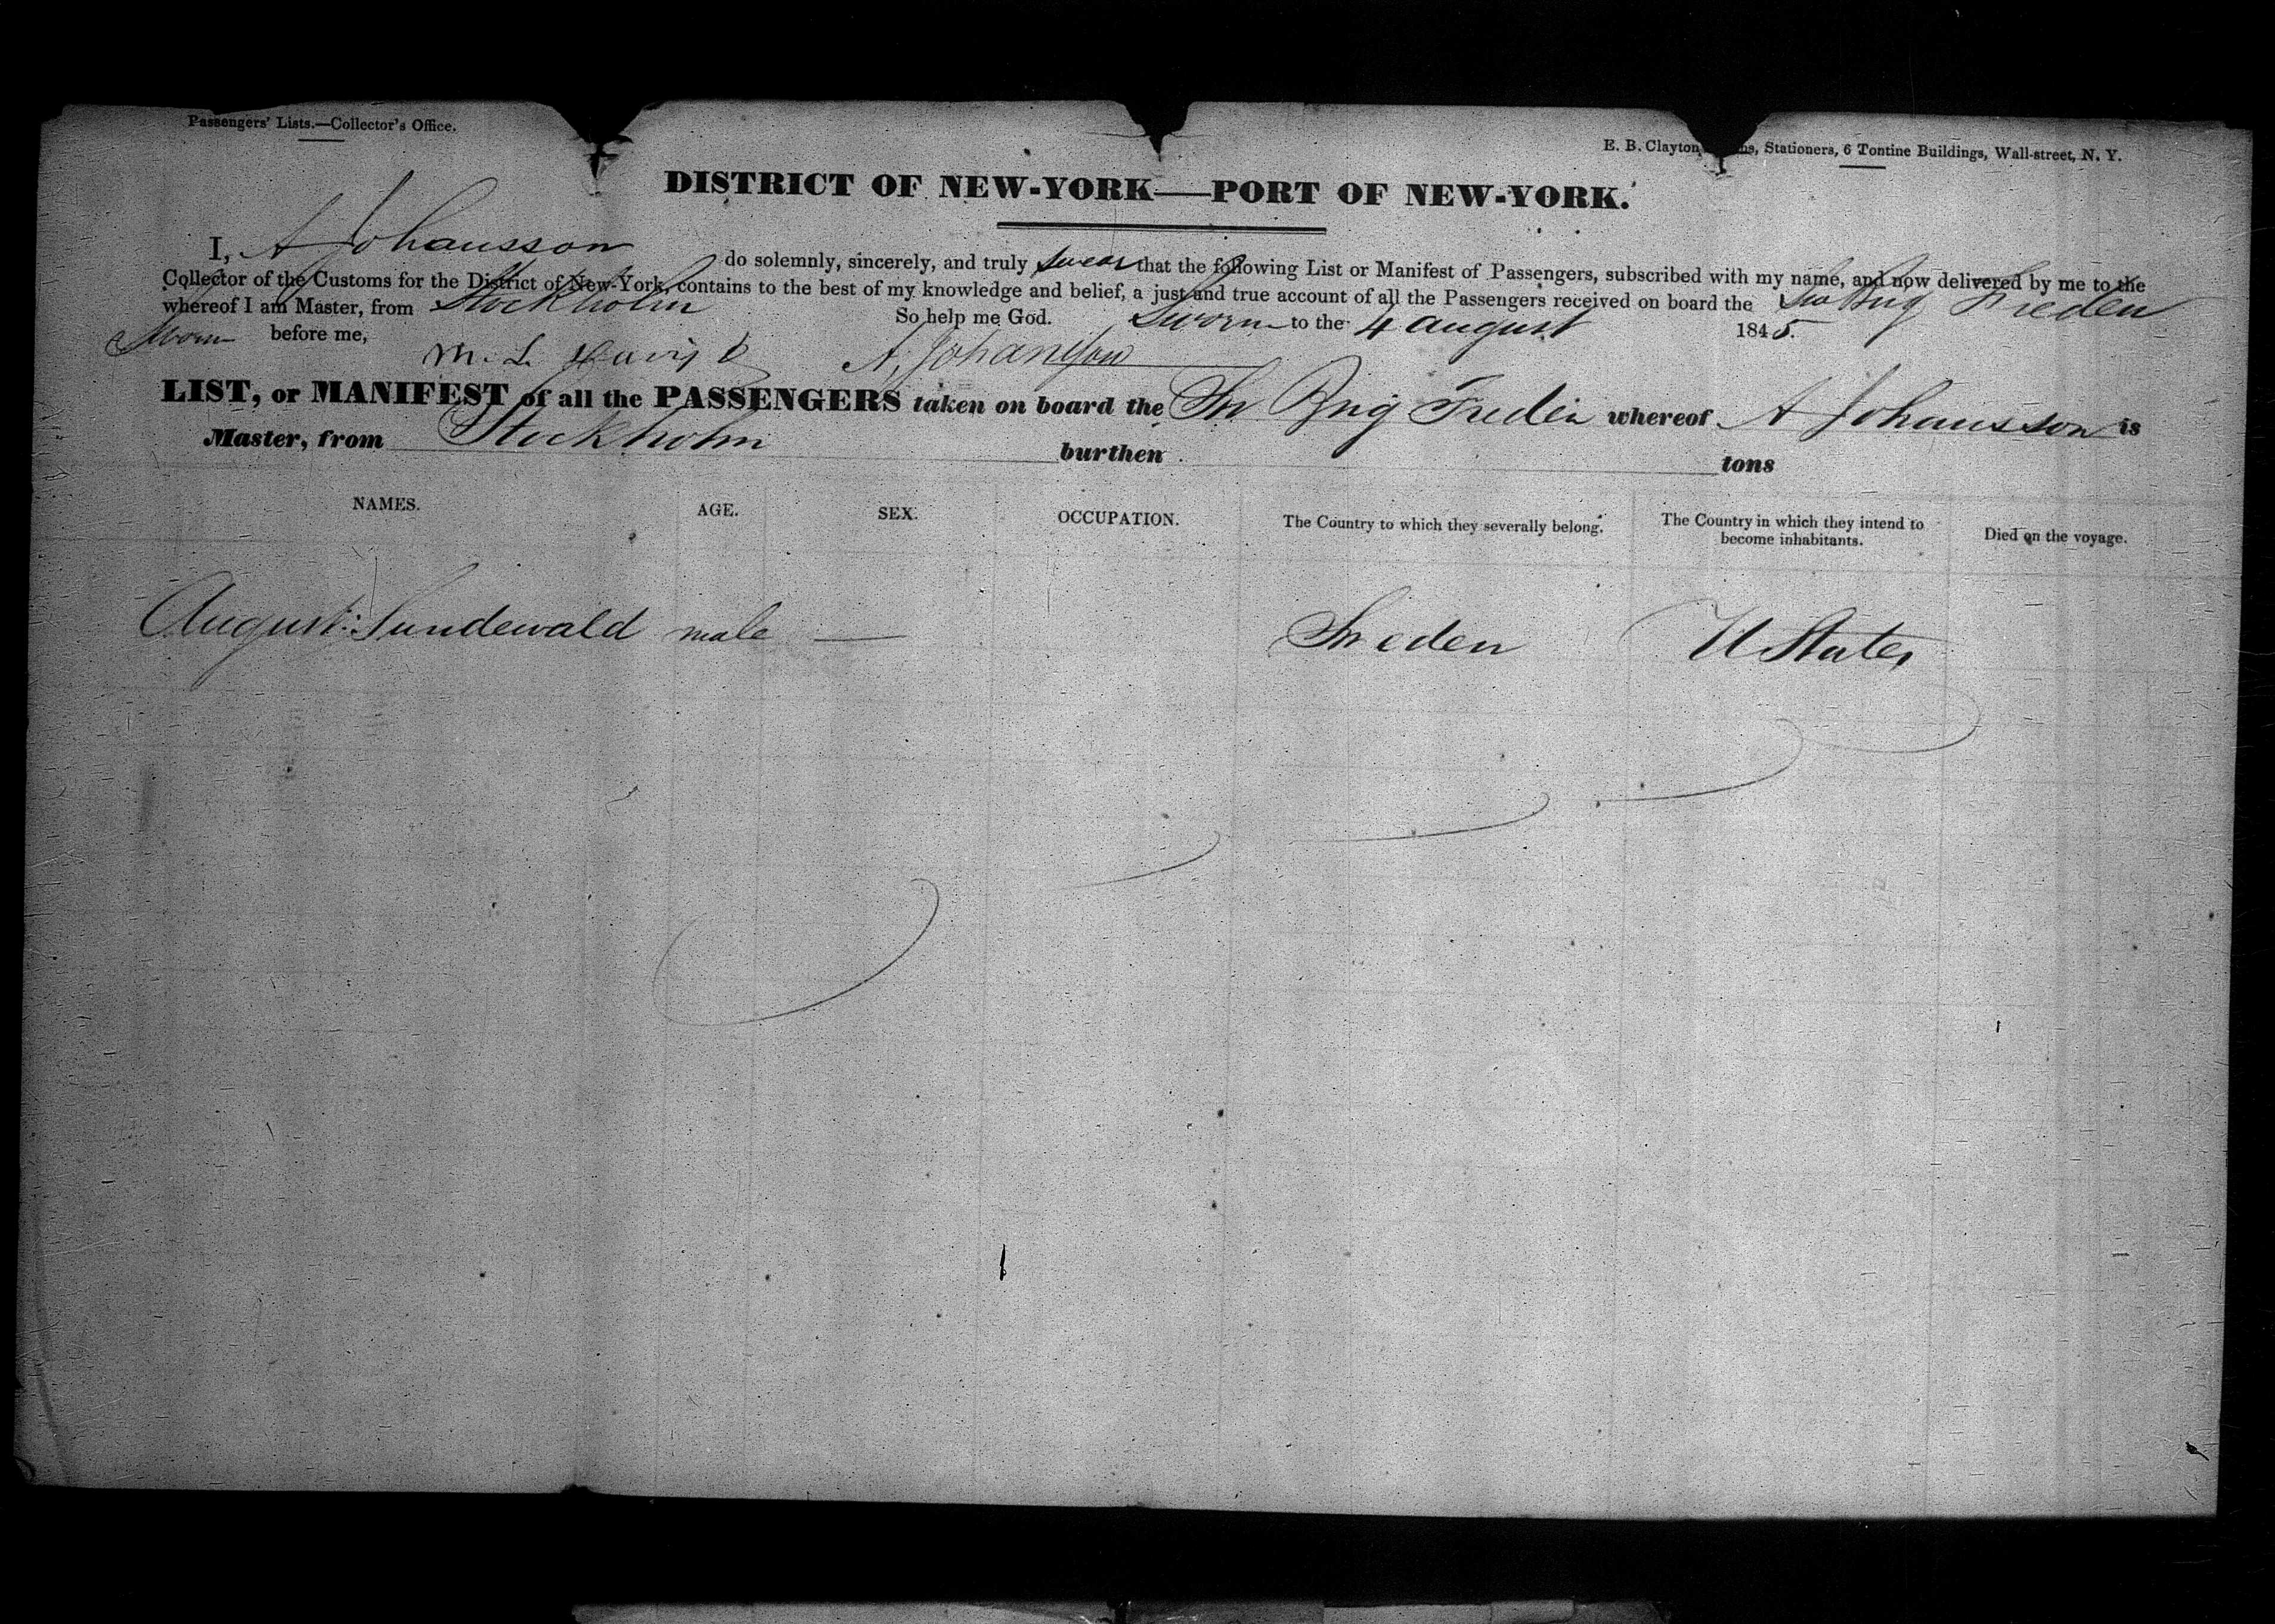 Passengers' Lists.—Collector's Office.
E. B. Clayton, Stationers, 6 Tontine Buildings, Wall-street, N. Y.
DISTRICT OF NEW-YORK—PORT OF NEW-YORK.
I, A Johansson do solemnly, sincerely, and truly swear that the following List or Manifest of Passengers, subscribed with my name, and now delivered by me to the
Collector of the Customs for the District of New-York, contains to the best of my knowledge and belief, a just and true account of all the Passengers received on board the Brig
whereof I am Master, from Stockholm So help me God. Sworn to the 4 august 1845.
Sworn before me,
M. L. A. Johansson
LIST, or MANIFEST of all the PASSENGERS taken on board the Sw Brig whereof A Johansson is
Master, from Stockholm burthen tons
NAMES. AGE. SEX. OCCUPATION. The Country to which they severally belong. The Country in which they intend to become inhabitants. Died on the voyage.
August: Sundewald male — Sweden U States